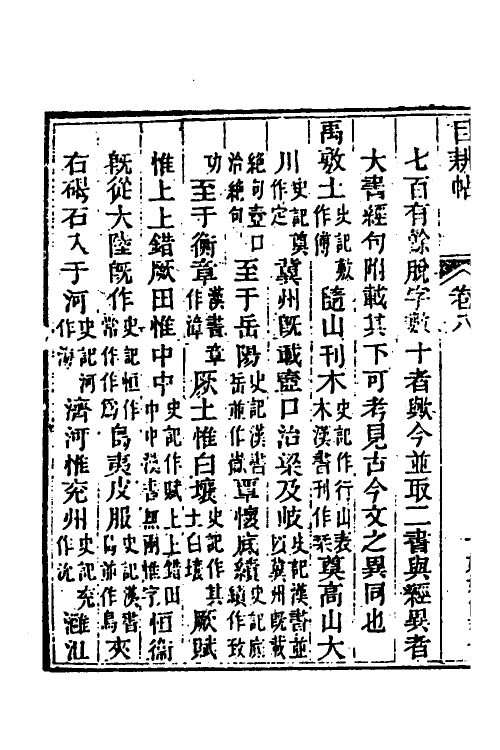 目耕帖
卷八
七百有餘脫字數十者歟今並取二書與經異者
大書經句附載其下可考見古今文之異同也
禹敷土史記敷作傅隨山刊木史記作行山表木漢書刊作栞奠高山大
川史記奠作定冀州旣載壺口治梁及岐史記漢書並以冀州旣載絕句壺口治絕句
至于岳陽史記漢書岳並作嶽覃懷厎績史記厎績作致功
至于衡章漢書章作漳厥土惟白壤史記作其土白壤厥賦
惟上上錯厥田惟中中史記作賦上上錯田中中漢書無兩惟字恒衞
旣從大陸旣作史記恒作常作作爲鳥夷皮服史記漢書鳥並作島夾
右碣石入于河史記河作海濟河惟兖州史記兖作沇灉沮